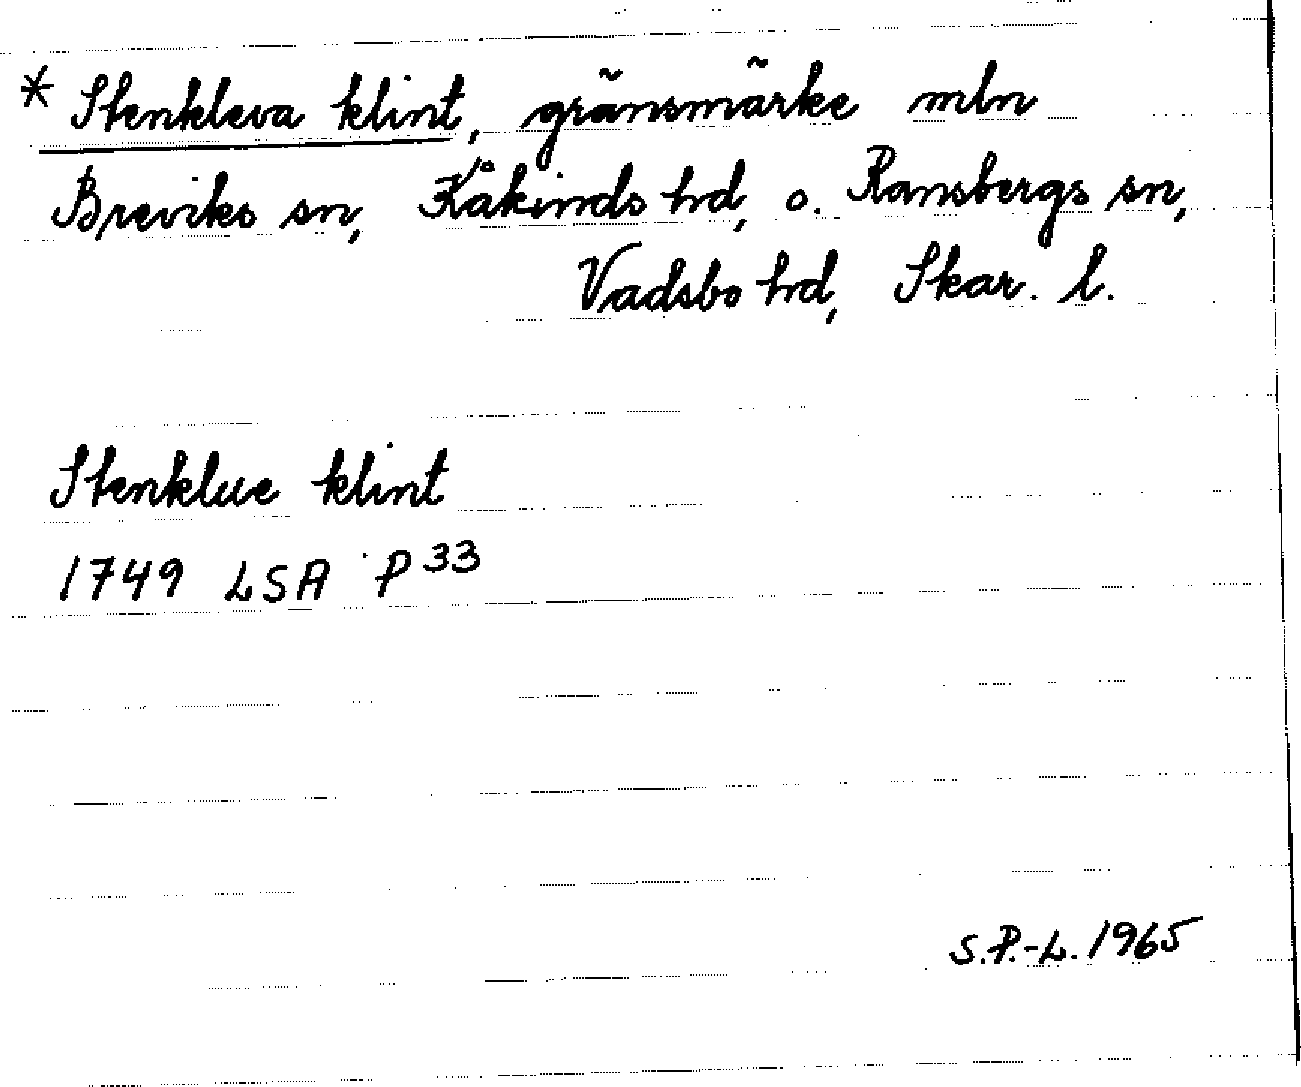 * Stenkleva klint, gränsmärke mln
Breviks sn, Kåkinds hd, o. Ransbergs sn,
Vadsbo hd, Skar. l.
Stenklue klint
1749 LSA P 33
S.P.-L. 1965